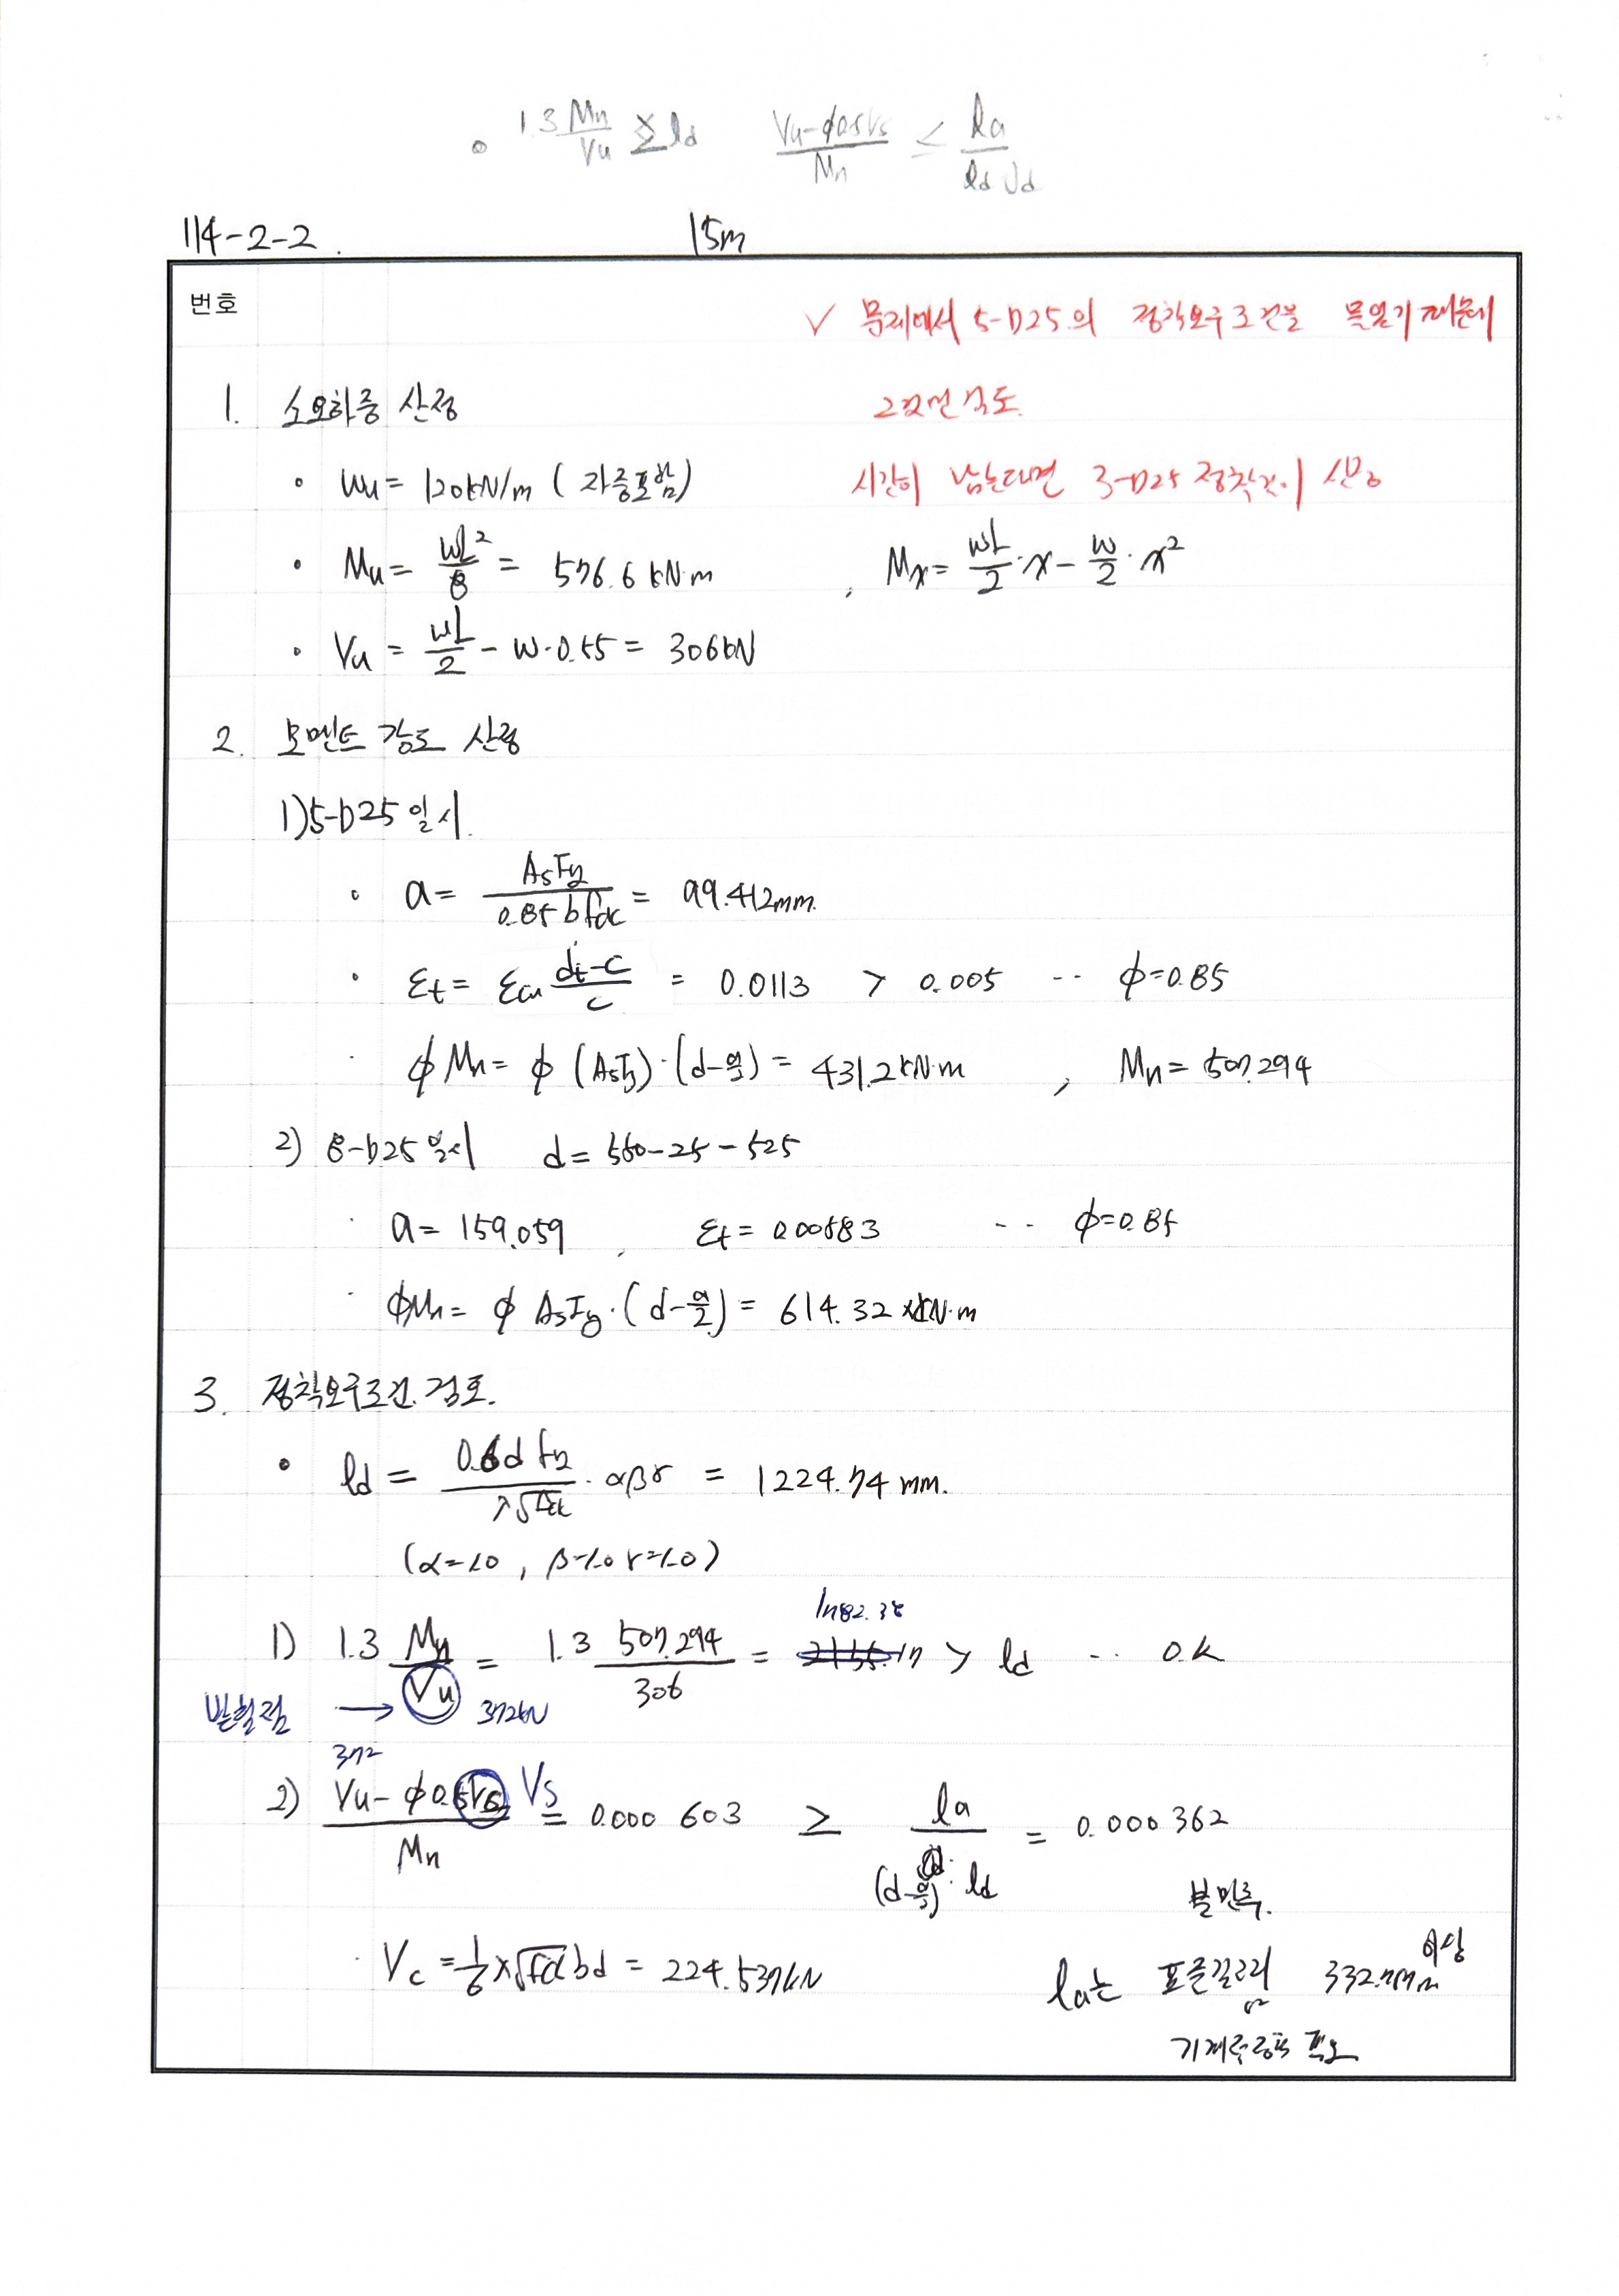 1.3 Mn/Vu ≥ ld   (Vu-ϕ0.5Vs)/Mn ≤ la/(ld Jd)
114-2-2.   15m
번호
✓ 문제에서 5-D25의 정착요구조건을 물었기 때문에
1. 소요하중 산정
2조건 검토.
• Wu = 120kN/m (자중포함)
시간이 남는다면 3-D25 정착길이 산정
• Mu = wL²/8 = 576.6 kN·m , Mx = wL/2·x - w/2·x²
• Vu = wL/2 - w·0.55 = 306kN
2. 모멘트 강도 산정
1) 5-D25 일시.
• a = AsFy/(0.85 b fck) = 99.412mm.
• εt = εcu (dt-c)/c = 0.0113 > 0.005 ∴ ϕ=0.85
· ϕMn = ϕ (AsFy)·(d-a/2) = 431.2kN·m , Mn = 507.294
2) 8-D25 일시 d = 550-25=525
· a = 159.059 , εt = 0.00583 ∴ ϕ=0.85
· ϕMn = ϕ AsFy·(d-a/2) = 614.32 kN·m
3. 정착요구조건 검토.
• ld = (0.6d fy)/(λ√fck)·αβγ = 1224.74 mm.
(α=1.0 , β=1.0 γ=1.0)
1782.38
1) 1.3 Mn/Vu = 1.3 507.294/306 = 2155.17 > ld ∴ O.K
반력점 → 372kN
372
2) (Vu-ϕ0.5Vs)/Mn Vs = 0.000 603 ≥ la/((d-a/2)·ld) = 0.000362
불만족.
· Vc = 1/6 λ√fck bd = 224.537kN
la는 표준갈고리 332.77mm 이상
or
기계적 정착 필요